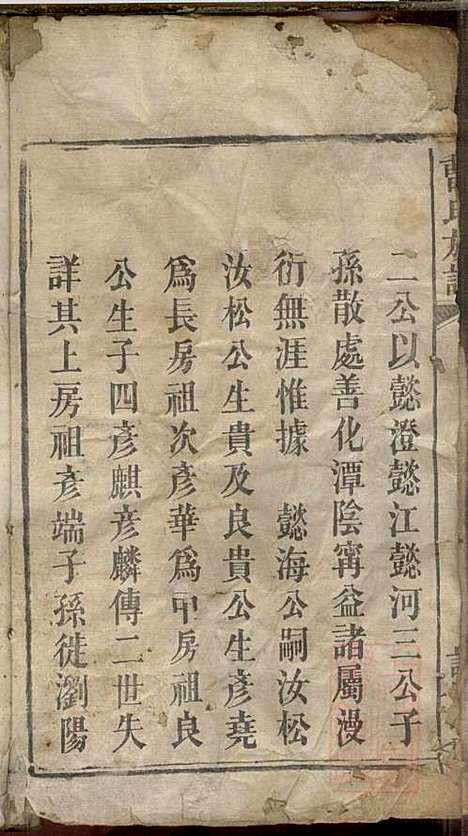 曹氏族譜
二公以懿澄懿江懿河三公子
孫散處善化潭陰甯益諸屬漫
衍無涯惟據　懿海公嗣汝松
汝松公生貴及良貴公生彥堯
爲長房祖次彥華爲甲房祖良
公生子四彥麒彥麟傳二世失
詳其上房祖彥端子孫徙瀏陽